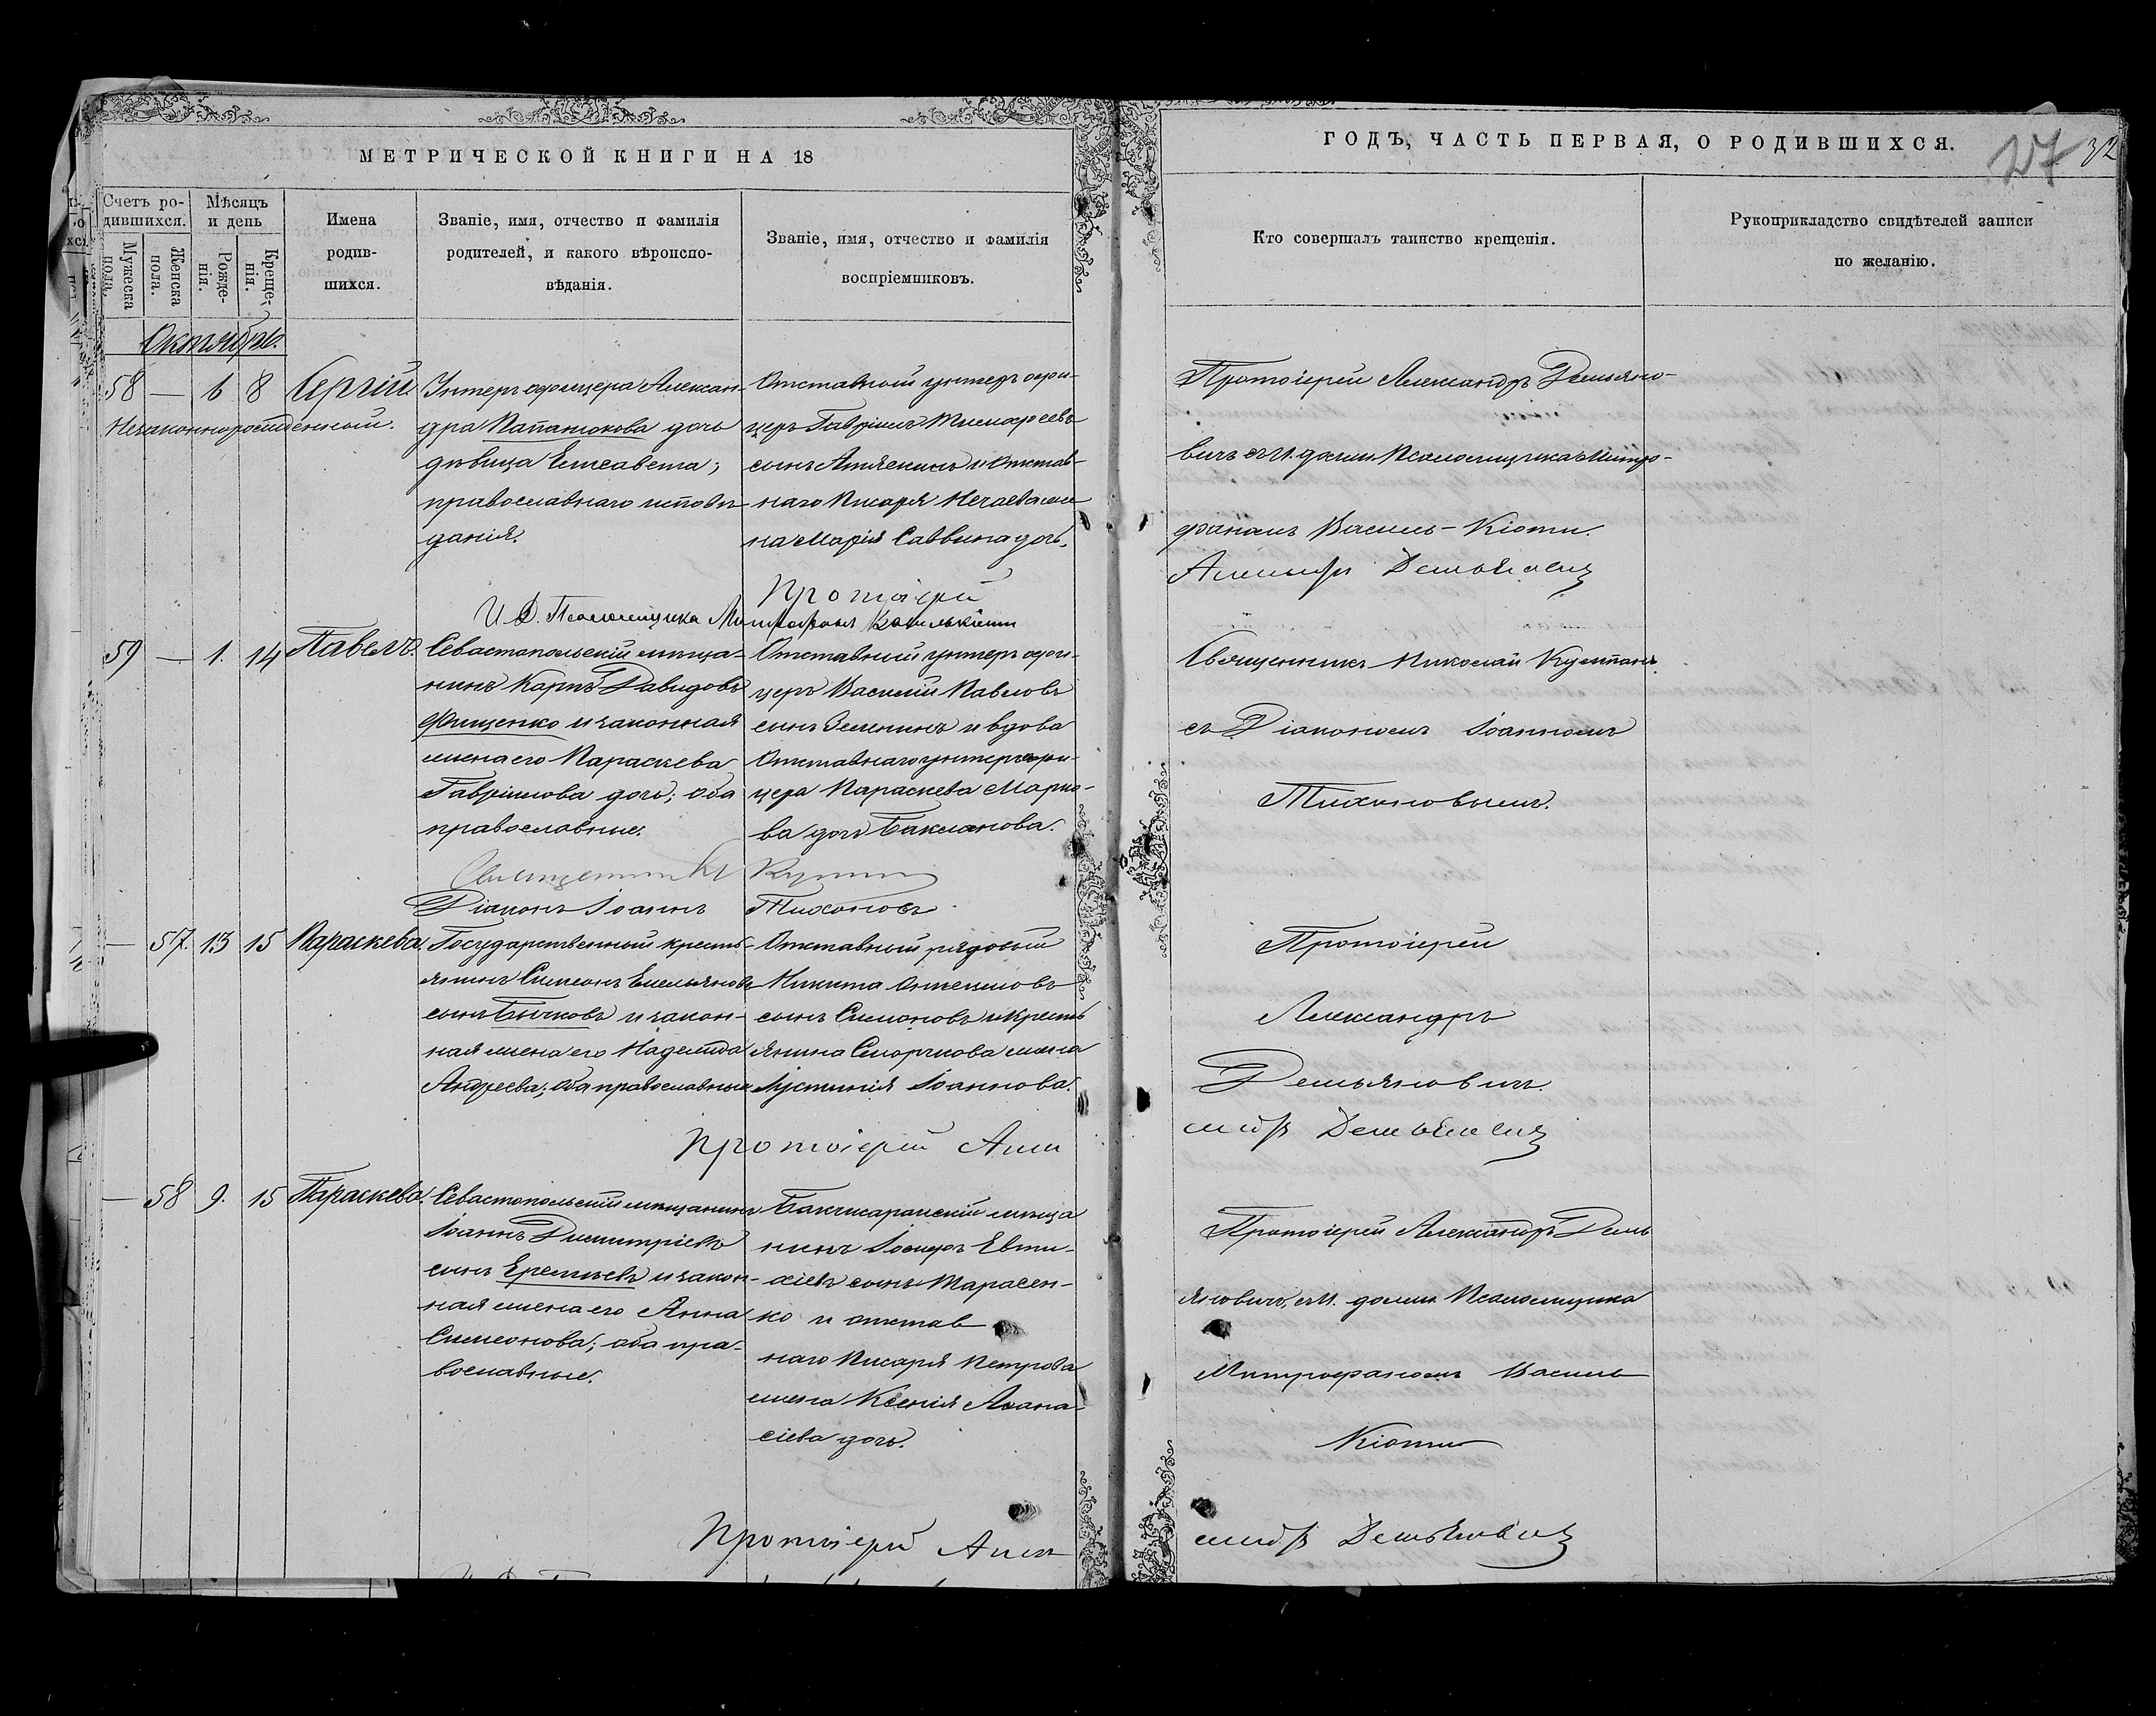 МЕТРИЧЕСКОЙ КНИГИ НА 18
ГОДЪ, ЧАСТЬ ПЕРВАЯ, О РОДИВШИХСЯ.
27
32
Счетъ ро-
дившихся.
Мужеска
пола.
Женска
пола.
Мѣсяцъ
и день
Рожде-
нія.
Креще-
нія.
Имена
родив-
шихся.
Званіе, имя, отчество и фамилія
родителей, и какого вѣроиспо-
вѣданія.
Званіе, имя, отчество и фамилія
воспріемниковъ.
Кто совершалъ таинство крещенія.
Рукоприкладство свидѣтелей записи
по желанію.
Октябрь.
58 — 6 8 Сергій
Незаконнорожденный.
Унтеръ офицера Алексан-
дра Папанюкова дочь
дѣвица Елисавета;
православнаго исповѣ-
данія.
Отставной унтеръ офи-
церъ Гавріилъ Тимофеевъ
сынъ и отстав-
наго писаря Нечаева же-
на Марія Саввина дочь.
Протоіерей Александръ Демьяно-
вичъ съ И. долж. Псаломщика Митро-
фаномъ Василь-Кіоти.
Протоіерей
Александръ Демьяновичъ
И. Д. Псаломщика Митрофанъ Василькіоти
59 — 1. 14 Павелъ.
Севастопольскій мѣща-
нинъ Карпъ Давидовъ
Фищенко и законная
жена его Параскева
Гавріилова дочь; оба
православные.
Отставный унтеръ офи-
церъ Василій Павловъ
сынъ Зеленинъ и вдова
Отставнаго унтеръ офи-
цера Параскева Марко-
ва дочь Бакланова.
Священникъ Николай
съ Діакономъ Іоанномъ
Тихоновымъ.
Священникъ
Діаконъ Іоаннъ Тихоновъ
— 57. 13 15 Параскева.
Государственный кресть-
янинъ Симеонъ Емельяновъ
сынъ Бычковъ и закон-
ная жена его Надежда
Андреева; оба православные
Отставный рядовой
Никита
сынъ Симоновъ и кресть
янина Сморчкова жена
Іустинія Іоаннова.
Протоіерей
Александръ
Демьяновичъ.
Протоіерей Алек
сандръ Демьяновичъ
— 58 9. 15 Параскева.
Севастопольскій мѣщанинъ
Іоаннъ Димитріевъ
сынъ Еремѣевъ и закон-
ная жена его Анна
Симеонова; оба пра-
вославные.
Бахчисарайскій мѣща
нинъ Іосифъ Евти-
хіевъ сынъ Тарасен-
ко и отстав
наго писаря Петрова
жена Ксенія Аѳана-
сіева дочь.
Протоіерей Александръ Демь
яновичъ, съ И. долж. Псаломщика
Митрофаномъ Василь
Кіоти
Протоіерей Алек
сандръ Демьяновичъ